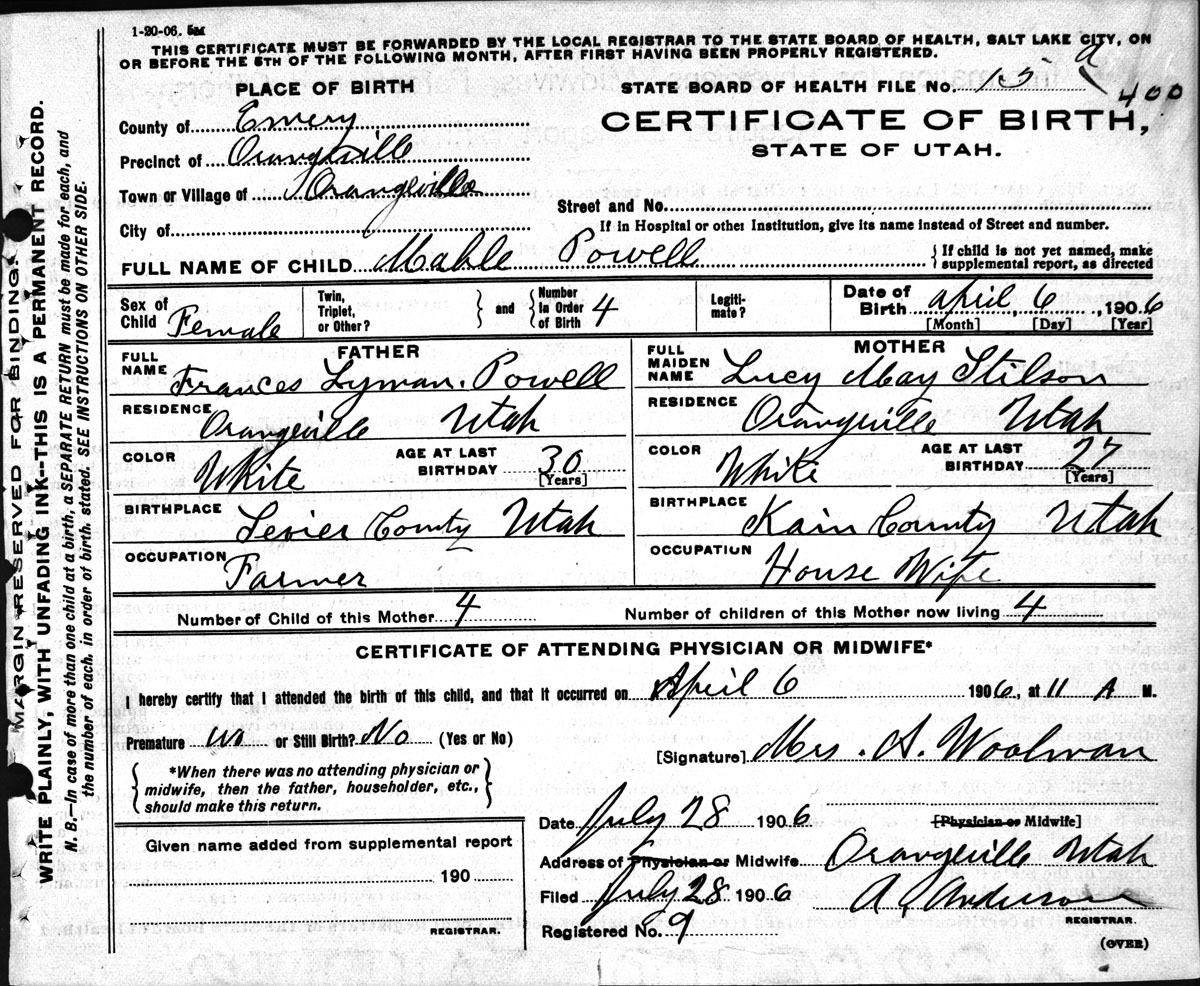 1-20-06. 5M
THIS CERTIFICATE MUST BE FORWARDED BY THE LOCAL REGISTRAR TO THE STATE BOARD OF HEALTH, SALT LAKE CITY, ON
OR BEFORE THE 5TH OF THE FOLLOWING MONTH, AFTER FIRST HAVING BEEN PROPERLY REGISTERED.
PLACE OF BIRTH
STATE BOARD OF HEALTH FILE NO. 15 a 400
County of Emery
CERTIFICATE OF BIRTH,
Precinct of Orangeville
STATE OF UTAH.
Town or Village of Orangeville
Street and No.
City of
If in Hospital or other Institution, give its name instead of Street and number.
FULL NAME OF CHILD Mable Powell {If child is not yet named, make supplemental report, as directed
Sex of Child Female
Twin, Triplet, or Other? } and { Number in Order of Birth 4
Legitimate?
Date of Birth April 6, 1906
[Month] [Day] [Year]
FATHER
FULL NAME Frances Lyman Powell
RESIDENCE Orangeville Utah
COLOR White AGE AT LAST BIRTHDAY 30 [Years]
BIRTHPLACE Sevier County Utah
OCCUPATION Farmer
MOTHER
FULL MAIDEN NAME Lucy May Stilson
RESIDENCE Orangeville Utah
COLOR White AGE AT LAST BIRTHDAY 27 [Years]
BIRTHPLACE Kain County Utah
OCCUPATION House Wife
Number of Child of this Mother 4 Number of children of this Mother now living 4
CERTIFICATE OF ATTENDING PHYSICIAN OR MIDWIFE*
I hereby certify that I attended the birth of this child, and that it occurred on April 6 1906, at 11 A M.
Premature no or Still Birth? No (Yes or No)
[Signature] Mrs. A. Woolman
{ *When there was no attending physician or
midwife, then the father, householder, etc.,
should make this return. }
[Physician or Midwife]
Date July 28 1906
Address of Physician or Midwife Orangeville Utah
Filed July 28 1906 Anderson
REGISTRAR.
Registered No. 9
(OVER)
Given name added from supplemental report
190
REGISTRAR.
MARGIN RESERVED FOR BINDING.
WRITE PLAINLY, WITH UNFADING INK--THIS IS A PERMANENT RECORD.
N. B.—In case of more than one child at a birth, a SEPARATE RETURN must be made for each, and
the number of each, in order of birth, stated. SEE INSTRUCTIONS ON OTHER SIDE.